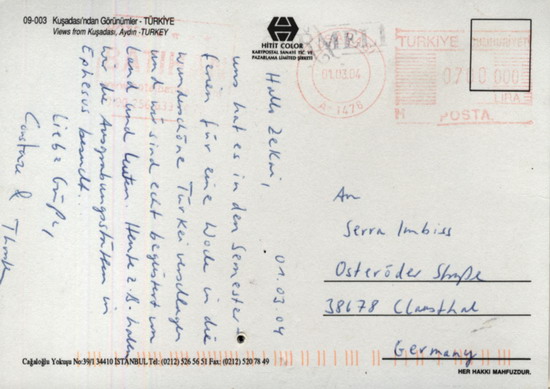 09-003 Kuşadası'ndan Görünümler - TÜRKİYE
Views from Kuşadası, Aydın -TURKEY
HİTİT COLOR
KARTPOSTAL SANAYİ TİC VE
PAZARLAMA LİMİTED ŞİRKETİ
01.03.04
A-1476
TÜRKİYE CUMHURİYETİ
0700000
LİRA
POSTA
01.03.04
Hallo Zekai,
uns hat es in den Semester-
ferien für eine Woche in die
wunderschöne Türkei verschlagen
und wir sind echt begeistert von
Land und Leuten. Heute z.B. haben
wir die Ausgrabungsstätten in
Ephesus besucht.
Liebe Grüße,
Constanze &
An
Serra Imbiss
Osteröder Straße
38678 Clausthal
Germany
Cağaloğlu Yokuşu No:39/1 34410 İSTANBUL Tel: (0212) 526 56 51 Fax: (0212) 520 78 49
HER HAKKI MAHFUZDUR.